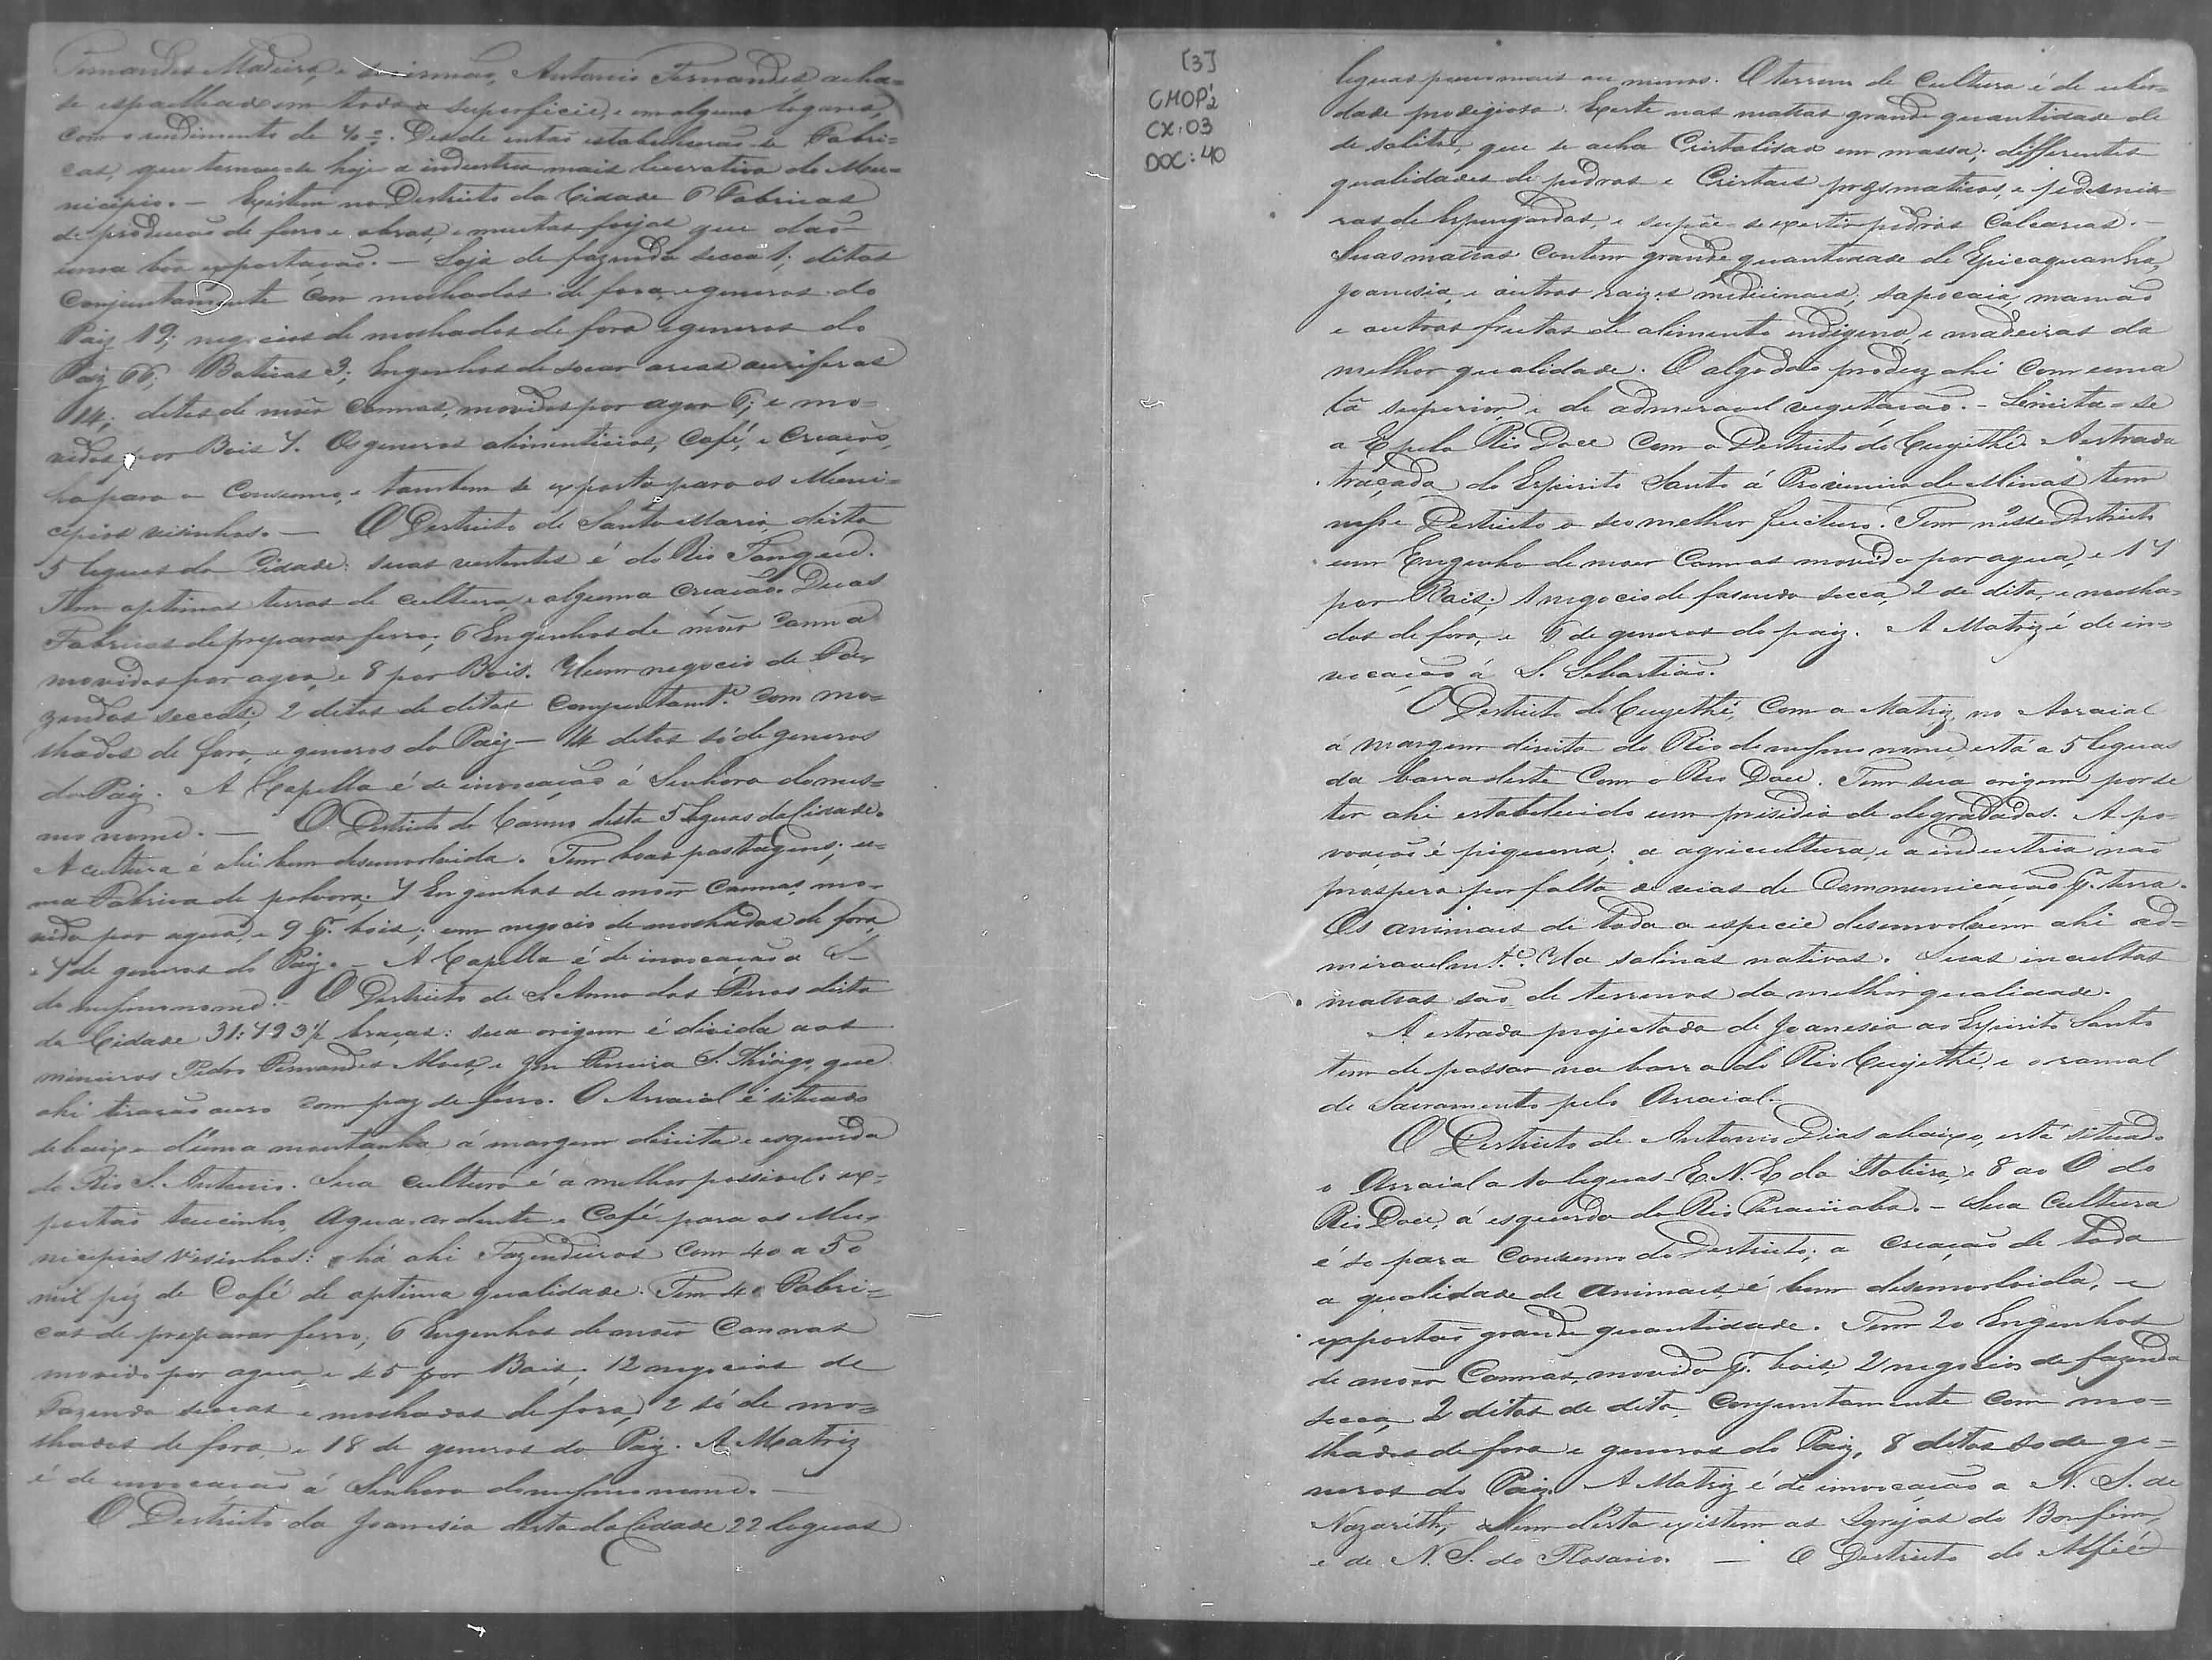 Fernandes Madeira, e seo irmão, Antonio Fernandes, acha-
se espalhado em todo a superficie, e em alguns logares,
com o rendimento de Desde entaõ estabeleceraõ-se Fabri-
cas, que tornou-se hoje a industria mais lucrativa do Mu-
nicipio. — Existem no Destricto da Cidade 6 Fabricas
de producçaõ de ferro e obras, e muitas forjas que daõ
uma bôa exportaçaõ. — Loja de fazenda secca 1; ditas
Conjuntamente com molhados de fora e generos do
Paiz 19; negocios de molhados de fora e generos do
Paiz 66; Boticas 3; Engenhos de socar areas auriferas
14; ditos de moêr Cannas, movidos por agoa 6; e mo-
vidos por Bois 7. Os generos alimenticios, Café, e Creaçaõ,
ha para o Consumo, e tambem se exporta para os Muni-
cipios visinhos. — O Destricto de Santa Maria dista
5 leguas da Cidade: suas vertentes é do Rio Tanque.
Tem optimas terras de cultura e alguma Creaçaõ. Duas
Fabricas de preparar ferro; 6 Engenhos de moêr Canna
movidos por agoa, e 8 por Bois. Hum negocio de Fa-
zendas seccas; 2 ditos de ditas Conjuntamt.e com mo-
lhados de fora, e generos do Paiz — 14 ditos só de generos
do Paiz. A Capella é de invocaçaõ á Senhora do mes-
mo nome. — O Destricto do Carmo dista 5 leguas da Cidade.
A cultura é ahi bem desenvolvida. Tem boas pastagens; u-
ma Fabrica de polvora; 7 Engenhos de moêr Cannas, mo-
vido por agua, e 9 p.r bois; um negocio de molhados de fora,
e 7 de generos do Paiz. — A Capella é de invocaçaõ a S.
do mesmo nome. — O Destricto de S. Anna dos Ferros dista
da Cidade braças: sua origem é divida aos
mineiros Pedro Fernandes Alves, e Pereira S. Thiago, que
ahi tiraraõ ouro com páz de ferro. O Arraial é situado
debaixo d'uma montanha á margem direita e esquerda
do Rio S. Antonio. Sua cultura é a melhor possivel: ex-
portaõ toucinho, Agua-ardente e Café para os Mu-
nicipios Visinhos: e há ahi Fazendeiros com 40 a 50
mil péz de Café de optima qualidade. Tem 4 Fabri-
cas de preparar ferro, 6 Engenhos de moêr Cannas
movido por agua, e 45 por Bois; 12 negocios de
Fazenda seccas e molhados de fora, 2 só de mo-
lhados de fora, e 18 de generos do Paiz. A Matriz
é de invocaçaõ á Senhora do mesmo nome. —
O Destricto da Joanesia dista da Cidade 22 leguas
[3]
CMOP 2
CX: 03
DOC: 40
leguas pouco mais ou menos. O terreno de Cultura é de uber-
dade prodigiosa. Existe nas mattas grande quantidade de
de salitre, que se acha Cristalisado em massa; differentes
qualidades de pedras e Cristaes prismaticos, e pederni-
ras de Espingardas, e supõe-se existir pedras Calcarias. —
Suas mattas Contem grande quantidade de Epicaquanha,
joanesia, e outras raizes medicinaes, sapocaia, mamaõ
e outras frutas de alimento indigena, e madeiras da
melhor qualidade. O algodaõ produz ahi Com uma
lã superior e de admiravel vegetaçaõ. — Limita-se
a E pelo Rio Doce Com o Destricto do Cuyethé. A estrada
traçada do Espirito Santo á Provincia de Minas tem
nesse Destricto o seo melhor futuro. Tem nesse Destricto
um Engenho de moer Cannas movido por agua, e 17
por Bois; 1 negocio de fasenda secca, 2 de dita, e molha-
dos de fora, e 6 de generos do paiz. A Matriz é de in-
vocaçaõ á S. Sebastiaõ.
O Destricto do Cuyethé, Com a Matriz no Arraial
á margem direita do Rio do mesmo nome, está a 5 leguas
da barra deste Com o Rio Doce. Tem sua origem por se
ter ahi estabelecido um prisidio de degradados. A po-
voaçaõ é piquena; a agricultura, e a industria naõ
prospera por falta de vias de Communicaçaõ p.r terra.
Os animais de toda a especie desenvolvem ahi ad-
miravelm.te Ha salinas nativas. Suas incultas
mattas saõ de terrenos da melhor qualidade.
A estrada projectada de Joanesia ao Espirito Santo
tem de passar na barra do Rio Cuyethé, e o ramal
de Sacramento pelo Arraial.
O Destricto de Antonio Dias abaixo, está situado
o Arraial a 10 leguas E.N.E da Itabira, e 8 ao O do
Rio Doce, á esquerda do Rio Piracicaba. — Sua Cultura
é só para Consumo do Destricto; a creaçaõ de toda
a qualidade de animaes é bem desenvolvida, e
exportaõ grande quantidade. Tem 20 Engenhos
de moer Cannas, movido p.r bois, 2 negocios de fazenda
secca, 2 ditos de dita, Conjuntamente com mo-
lhados de fora e generos do Paiz, 8 ditos só de ge-
neros do Paiz. A Matriz é de invocaçaõ a N. S. de
Nazaréth, alem d'esta existem as Igrejas do Bomfim,
e de N. S. do Rosario. — O Destricto do Alfié